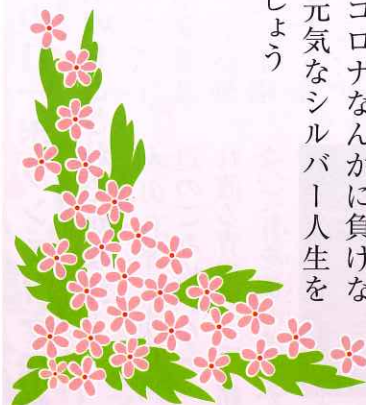 コロナなんかに負けな
元気なシルバー人生を
しょう